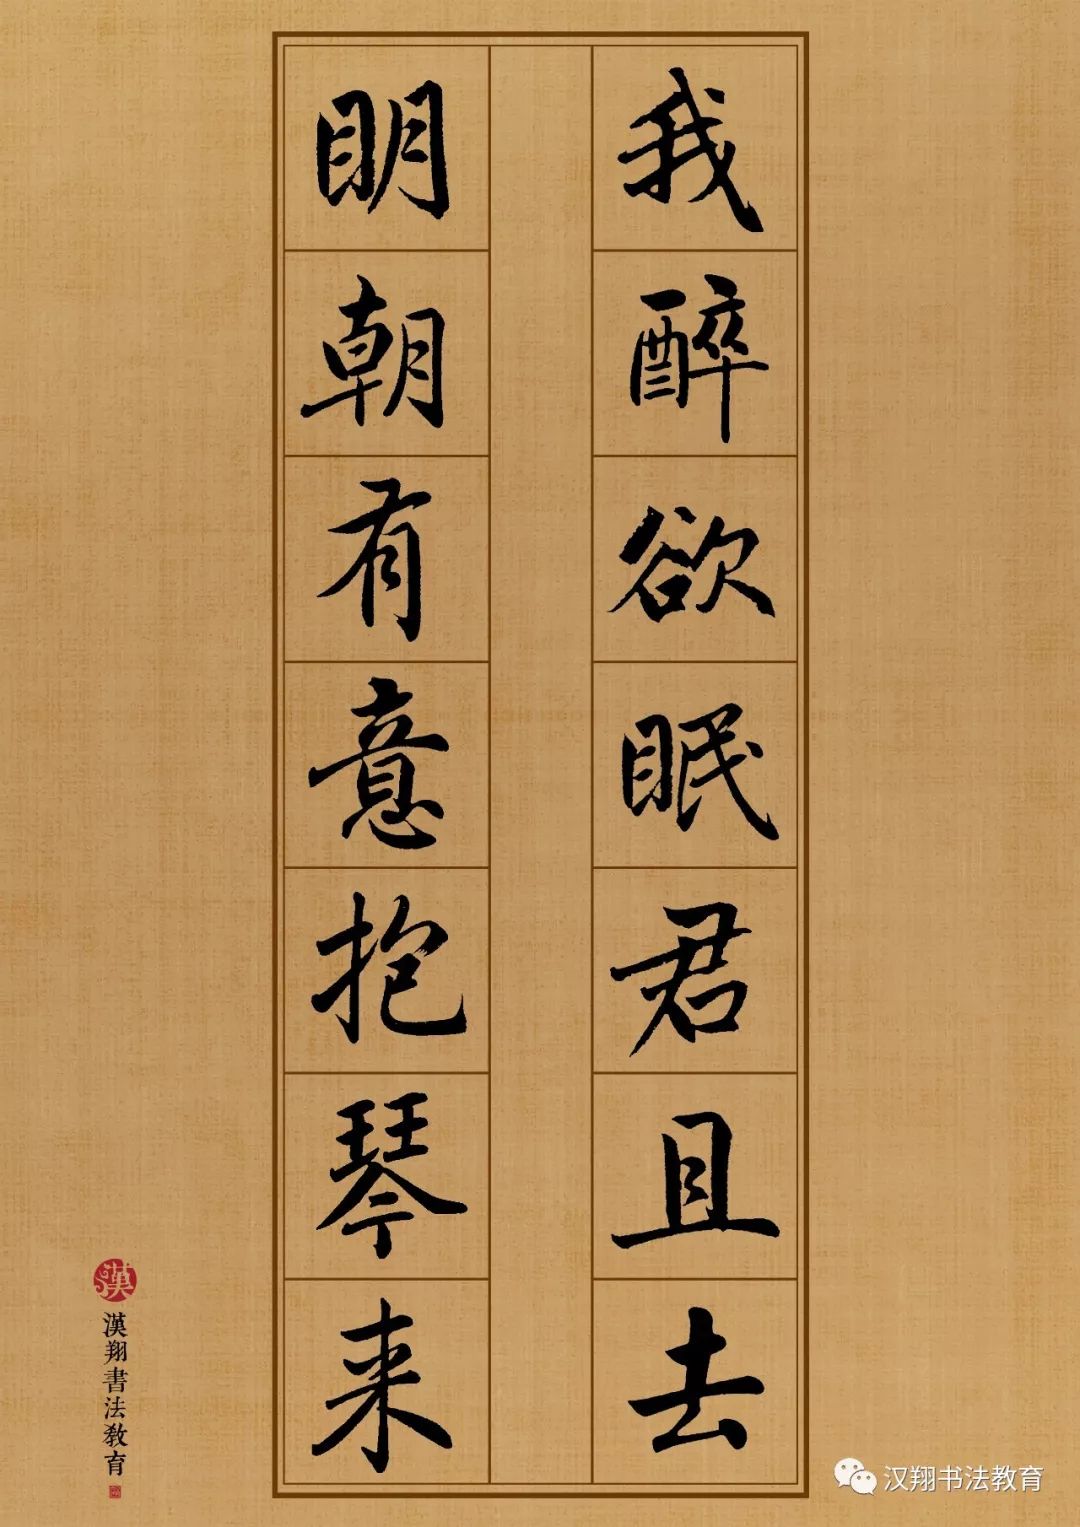 我醉欲眠君且去
明朝有意抱琴来
漢
漢翔書法教育
汉翔书法教育